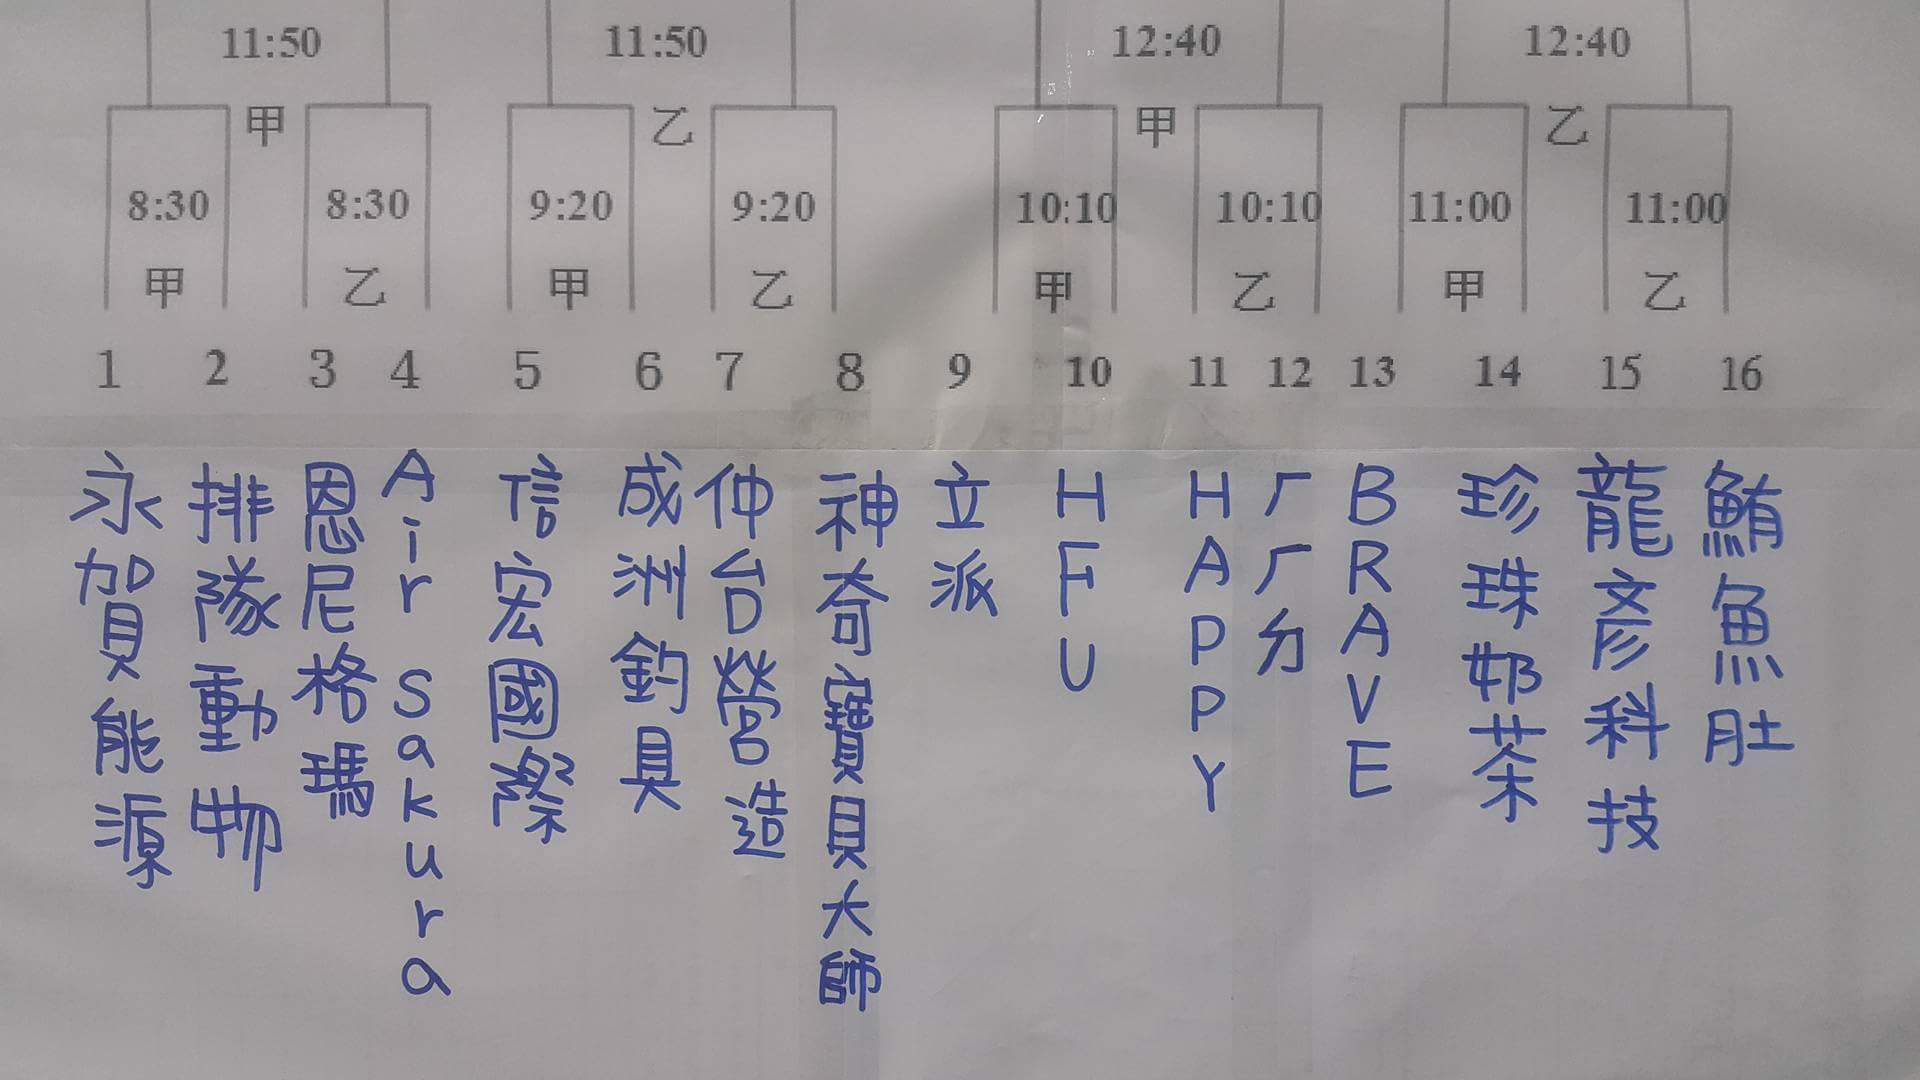 11:50 11:50 12:40 12:40
甲 乙 甲 乙
8:30 8:30 9:20 9:20 10:10 10:10 11:00 11:00
甲 乙 甲 乙 甲 乙 甲 乙
1 2 3 4 5 6 7 8 9 10 11 12 13 14 15 16
永賀能源
排隊動物
恩尼格瑪
Air Sakura
信宏國際
成洲釣具
仲台營造
神奇寶貝大師
立派
HFU
HAPPY
ㄏㄏ分
BRAVE
珍珠奶茶
龍彥科技
鮪魚肚